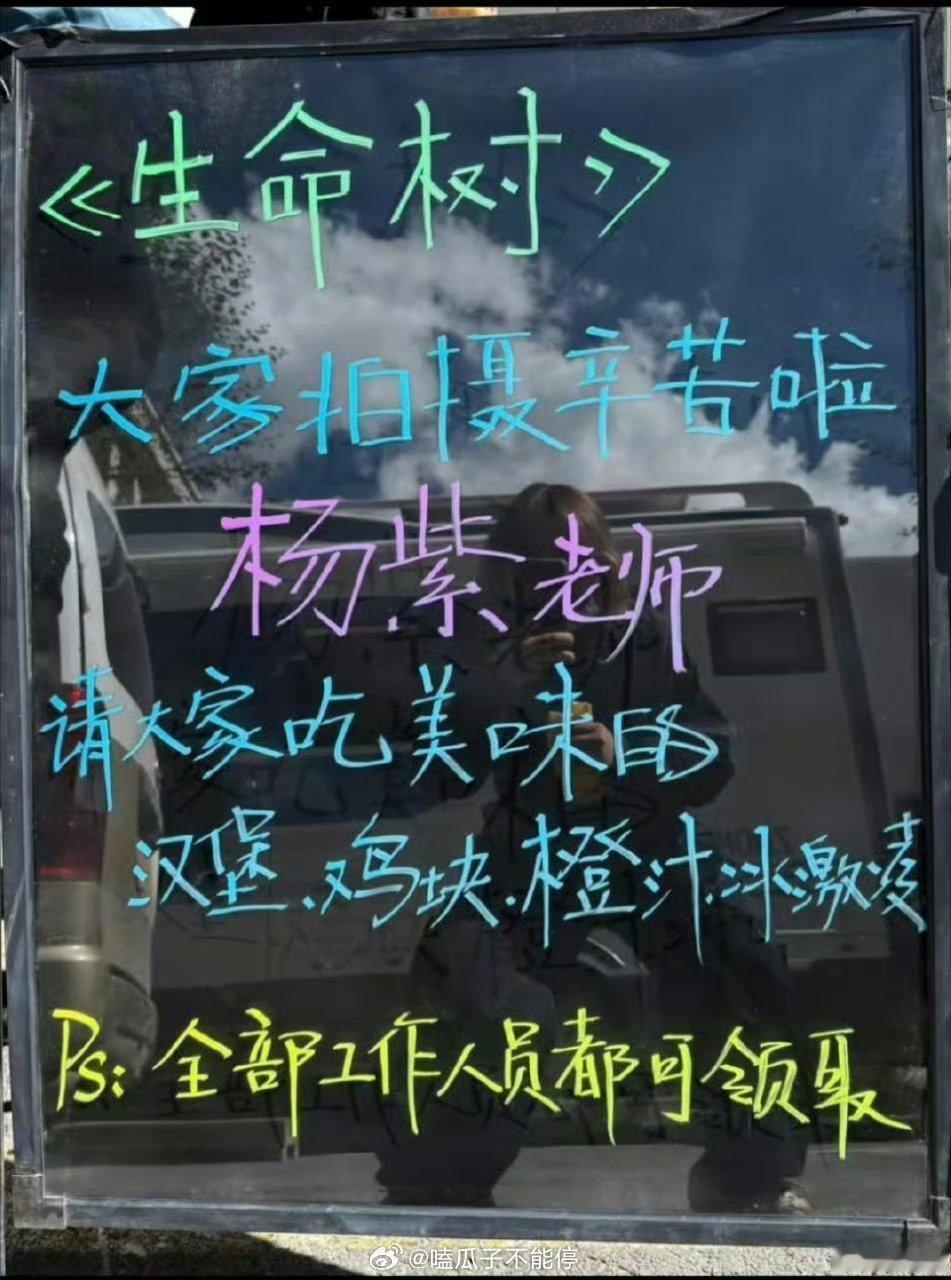 《生命树》
大家拍摄辛苦啦
杨紫老师
请大家吃美味的
汉堡.鸡块.橙汁.冰激凌
Ps:全部工作人员都可领取
@嗑瓜子不能停